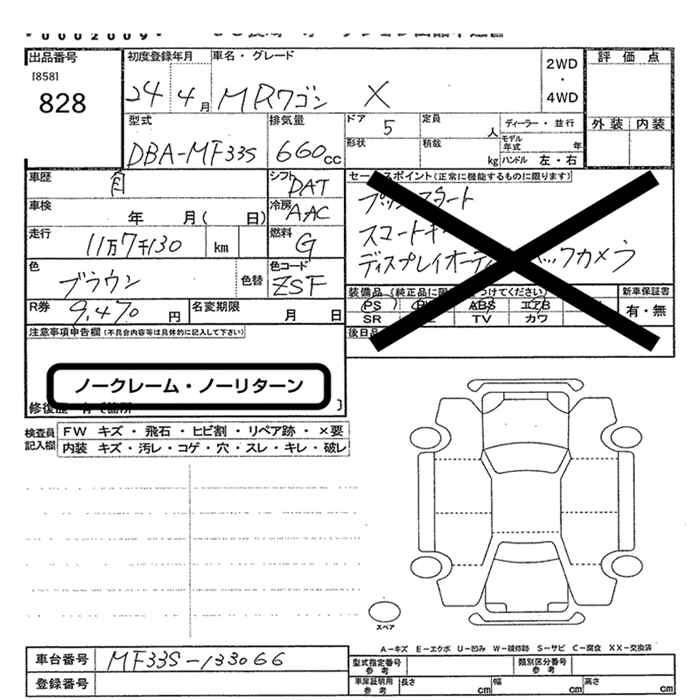 出品番号
[858]
828
初度登録年月
24 4 月
車名・グレード
MRワゴン X
2WD
・
4WD
評価点
外装 内装
型式
DBA-MF33S
排気量
660cc
ドア 5
形状
定員 人
積載 kg
ディーラー・並行
モデル年式 年
ハンドル 左・右
車歴
シフト DAT
車検 年 月( 日)
冷房 AAC
走行 11万7千130 km
燃料 G
色 ブラウン 色替
色コード ZSF
R券 9,470 円
名変期限 月 日
セールスポイント(正常に機能するものに限ります)
プッシュスタート
スマートキー
ディスプレイオーディオ バックカメラ
新車保証書
有・無
PS ABS エアB
SR TV カワ
注意事項申告欄(不具合内容等は具体的に記入して下さい)
ノークレーム・ノーリターン
検査員記入欄
FW キズ・飛石・ヒビ割・リペア跡・×要
内装 キズ・汚レ・コゲ・穴・スレ・キレ・破レ
スペア
A-キズ E-エクボ U-凹み W-補修跡 S-サビ C-腐食 XX-交換済
車台番号 MF33S-133066
登録番号
型式指定番号 参考
類別区分番号 参考
車庫証明用 参考
長さ cm
幅 cm
高さ cm